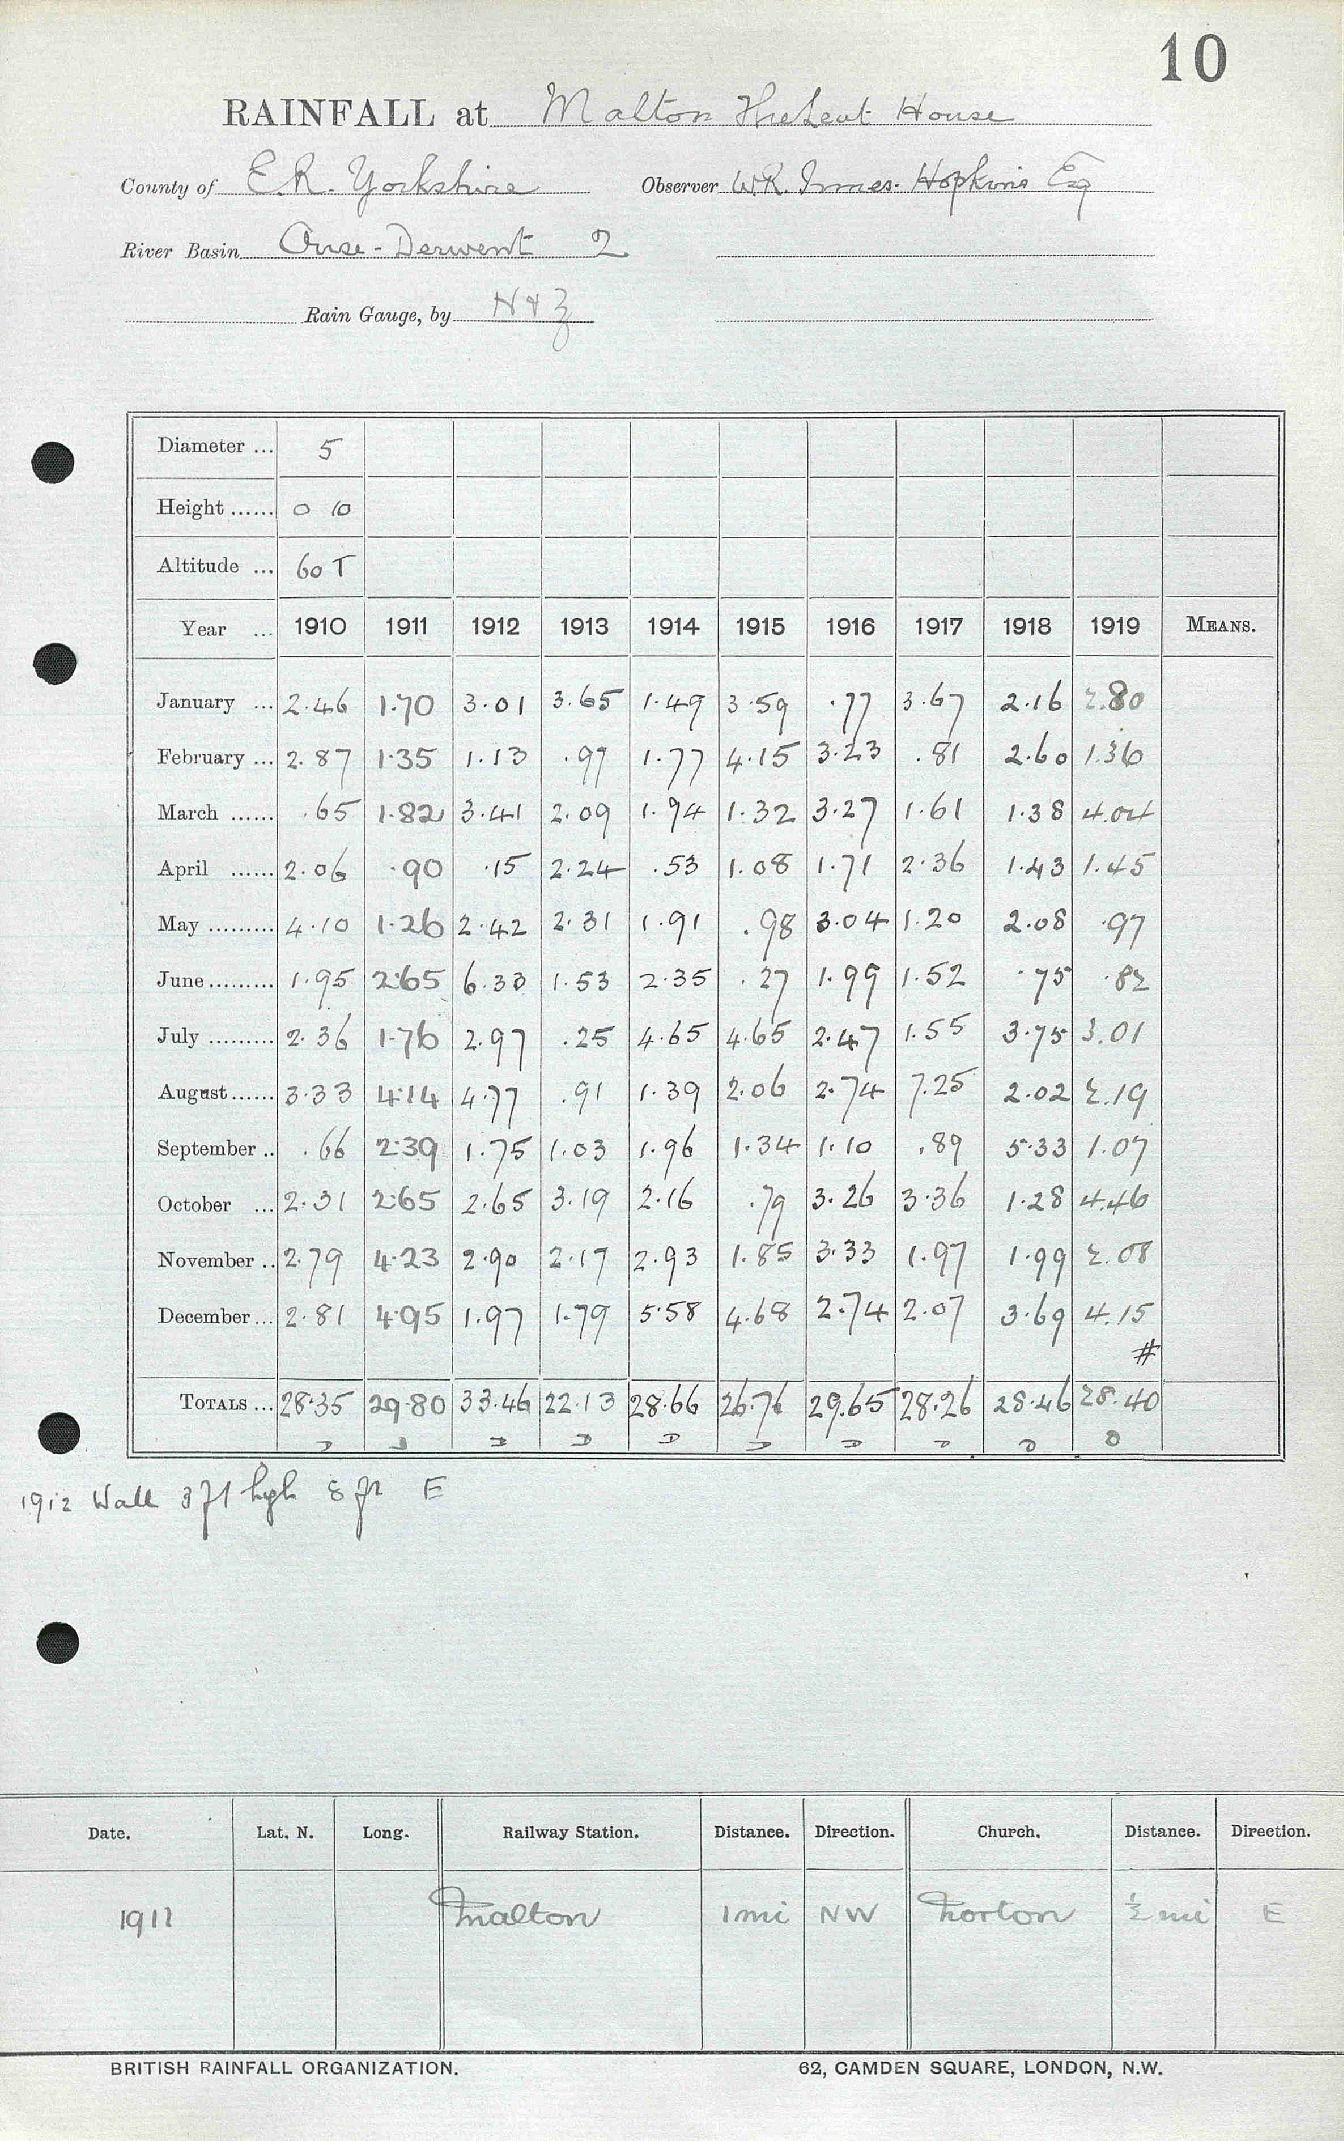 10
RAINFALL at Malton House
County of E.R. Yorkshire Observer W.R. Innes-Hopkins Esq
River Basin Ouse-Derwent 2
Rain Gauge, by N & Z
Diameter ... 5
Height ...... 0 10
Altitude ... 60 T
Year ... 1910 1911 1912 1913 1914 1915 1916 1917 1918 1919 MEANS.
January ... 2.46 1.70 3.01 3.65 1.49 3.59 .77 3.67 2.16 2.80
February ... 2.87 1.35 1.13 .97 1.77 4.15 3.23 .81 2.60 1.36
March ...... .65 1.82 3.41 2.09 1.94 1.32 3.27 1.61 1.38 4.04
April ...... 2.06 .90 .15 2.24 .53 1.08 1.71 2.36 1.43 1.45
May ......... 4.10 1.26 2.42 2.31 1.91 .98 3.04 1.20 2.08 .97
June ......... 1.95 2.65 6.33 1.53 2.35 .27 1.99 1.52 .75 .82
July ......... 2.36 1.76 2.97 .25 4.65 4.65 2.47 1.55 3.75 3.01
August ...... 3.33 4.14 4.77 .91 1.39 2.06 2.74 7.25 2.02 2.19
September .. .66 2.39 1.75 1.03 1.96 1.34 1.10 .89 5.33 1.07
October ... 2.31 2.65 2.65 3.19 2.16 .79 3.26 3.36 1.28 4.46
November .. 2.79 4.23 2.90 2.17 2.93 1.85 3.33 1.97 1.99 2.08
December ... 2.81 4.95 1.97 1.79 5.58 4.68 2.74 2.07 3.69 4.15
#
TOTALS ... 28.35 29.80 33.46 22.13 28.66 26.76 29.65 28.26 28.46 28.40
1912 Wall 3 ft high 8 ft E
Date. Lat. N. Long. Railway Station. Distance. Direction. Church. Distance. Direction.
1912 Malton 1 mi NW Norton ½ mi E
BRITISH RAINFALL ORGANIZATION. 62, CAMDEN SQUARE, LONDON, N.W.